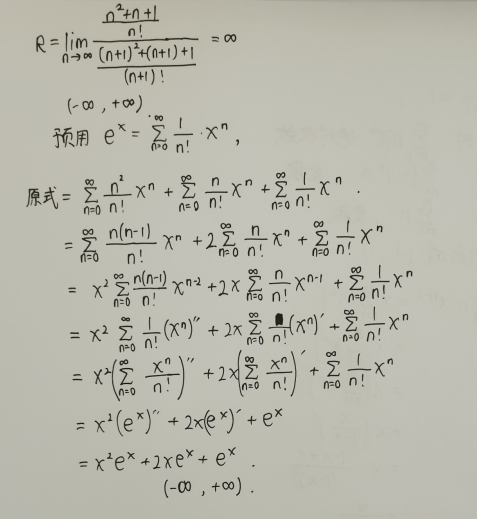 R = lim_{n→∞} \frac{\frac{n²+n+1}{n!}}{\frac{(n+1)²+(n+1)+1}{(n+1)!}} = ∞
(-∞, +∞)
预用 e^x = \sum_{n=0}^{∞} \frac{1}{n!} · x^n,
原式 = \sum_{n=0}^{∞} \frac{n²}{n!} x^n + \sum_{n=0}^{∞} \frac{n}{n!} x^n + \sum_{n=0}^{∞} \frac{1}{n!} x^n .
= \sum_{n=0}^{∞} \frac{n(n-1)}{n!} x^n + 2 \sum_{n=0}^{∞} \frac{n}{n!} x^n + \sum_{n=0}^{∞} \frac{1}{n!} x^n
= x² \sum_{n=0}^{∞} \frac{n(n-1)}{n!} x^{n-2} + 2x \sum_{n=0}^{∞} \frac{n}{n!} x^{n-1} + \sum_{n=0}^{∞} \frac{1}{n!} x^n
= x² \sum_{n=0}^{∞} \frac{1}{n!} (x^n)'' + 2x \sum_{n=0}^{∞} \frac{}{n!} (x^n)' + \sum_{n=0}^{∞} \frac{1}{n!} x^n
= x² (\sum_{n=0}^{∞} \frac{x^n}{n!})'' + 2x (\sum_{n=0}^{∞} \frac{x^n}{n!})' + \sum_{n=0}^{∞} \frac{1}{n!} x^n
= x² (e^x)'' + 2x (e^x)' + e^x
= x² e^x + 2x e^x + e^x .
(-∞, +∞) .